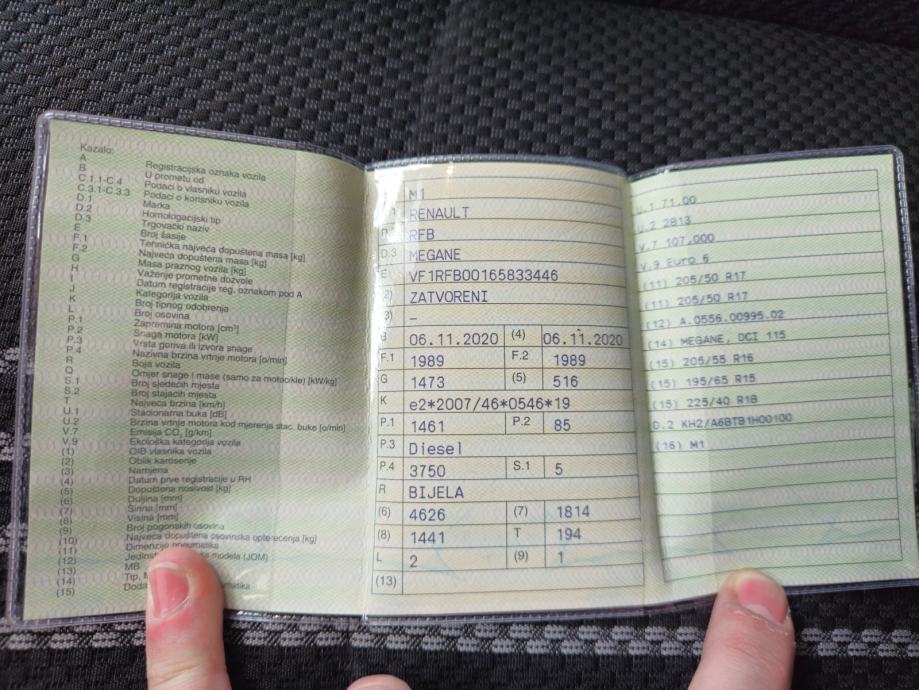 Kazalo:
A Registracijska oznaka vozila
B U prometu od
C.1.1-C.4 Podaci o vlasniku vozila
C.3.1-C.3.3 Podaci o korisniku vozila
D.1 Marka
D.2 Homologacijski tip
D.3 Trgovački naziv
E Broj šasije
F.1 Tehnička najveća dopuštena masa [kg]
F.2 Najveća dopuštena masa [kg]
G Masa praznog vozila [kg]
H Važenje prometne dozvole
I Datum registracije reg. oznakom pod A
J Kategorija vozila
K Broj tipnog odobrenja
L Broj osovina
P.1 Zapremina motora [cm³]
P.2 Snaga motora [kW]
P.3 Vrsta goriva ili izvora snage
P.4 Nazivna brzina vrtnje motora [o/min]
R Boja vozila
Q Omjer snage i mase (samo za motocikle) [kW/kg]
S.1 Broj sjedećih mjesta
S.2 Broj stajaćih mjesta
T Najveća brzina [km/h]
U.1 Stacionarna buka [dB]
U.2 Brzina vrtnje motora kod mjerenja stac. buke [o/min]
V.7 Emisija CO₂ [g/km]
V.9 Ekološka kategorija vozila
(1) OIB vlasnika vozila
(2) Oblik karoserije
(3) Namjena
(4) Datum prve registracije u RH
(5) Dopuštena nosivost [kg]
(6) Duljina [mm]
(7) Širina [mm]
(8) Visina [mm]
(9) Broj pogonskih osovina
(10) Najveća dopuštena osovinska opterećenja [kg]
(11) Dimenzije pneumatika
(12) modela (JOM)
(13) MB
(14) Tip,
(15)
M1
RENAULT
RFB
D.3 MEGANE
E VF1RFB00165833446
(2) ZATVORENI
(3) –
B 06.11.2020 (4) 06.11.2020
F.1 1989 F.2 1989
G 1473 (5) 516
K e2*2007/46*0546*19
P.1 1461 P.2 85
P.3 Diesel
P.4 3750 S.1 5
R BIJELA
(6) 4626 (7) 1814
(8) 1441 T 194
L 2 (9) 1
(13)
U.1 71.00
U.2 2813
V.7 107,000
V.9 Euro 6
(11) 205/50 R17
(11) 205/50 R17
(12) A.0556.00995.02
(14) MEGANE, DCI 115
(15) 205/55 R16
(15) 195/65 R15
(15) 225/40 R18
D.2 KH2/A6BTB1H00100
(16) M1